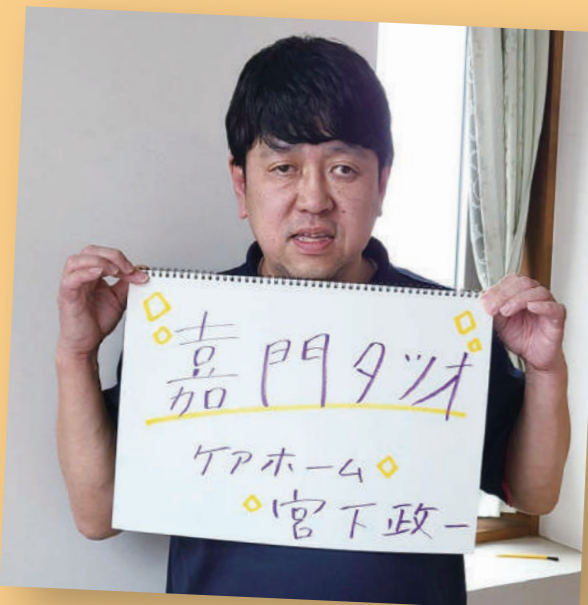 嘉門タツオ
ケアホーム
宮下政一